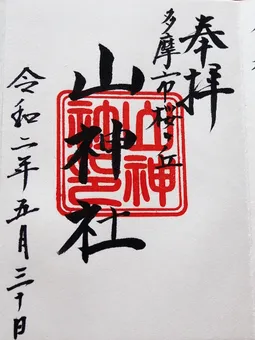 奉拝
多摩市桜ヶ丘
山神社
山神社印
令和二年五月三十日